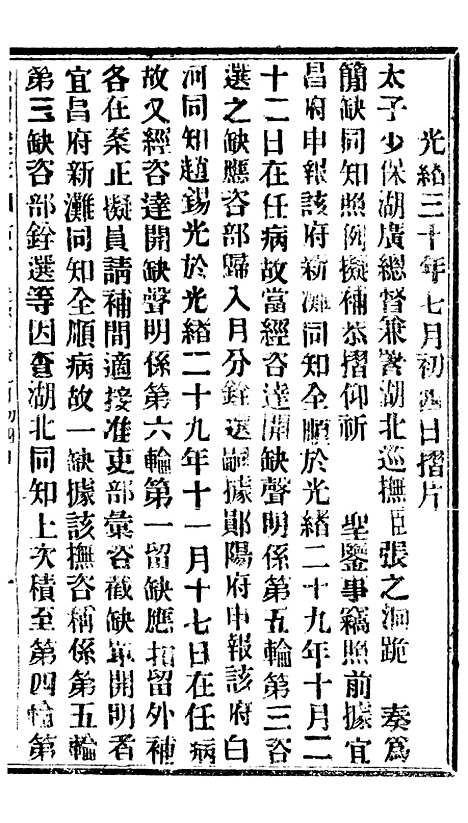 光緒三十年七月初四日摺片
太子少保湖廣總督兼署湖北巡撫臣張之洞跪 奏爲
簡缺同知照例擬補恭摺仰祈 聖鑒事竊照前據宜
昌府申報該府新灘同知全順於光緒二十九年十月二
十二日在任病故當經咨達開缺聲明係第五輪第三咨
選之缺應咨部歸入月分銓選嗣據鄖陽府申報該府白
河同知趙錫光於光緒二十九年十一月十七日在任病
故又經咨達開缺聲明係第六輪第一留缺應扣留外補
各在案正擬員請補間適接准吏部彙咨截缺單開明者
宜昌府新灘同知全順病故一缺據該撫咨稱係第五輪
第三缺咨部銓選等因查湖北同知上次積至第四輪第